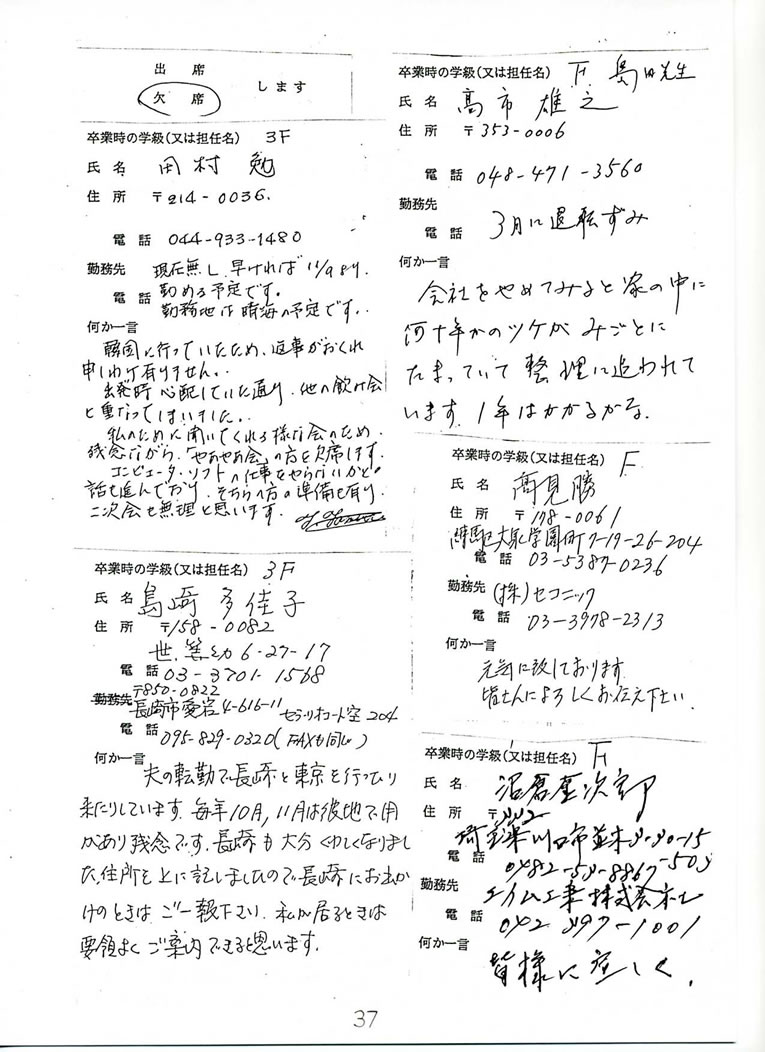 出席
欠席
します
卒業時の学級(又は担任名) 3F
氏名 田村 勉
住所 〒214-0036.
電話 044-933-1480
勤務先 現在無し. 早ければ 11/9より.
電話 勤める予定です。
勤務地は晴海の予定です..
何か一言
韓国に行っていたため、返事がおくれ
申しわけ有りません..
出発時心配していた通り、他の飲み会
と重なってしまいました..
私のために開いてくれる様な会のため、
残念ながら、「やあやあ会」の方を欠席します。
コンピュータ・ソフトの仕事をやらないかとの
話も進んでおり、そちらの方の準備も有り、
二次会も無理と思います.
卒業時の学級(又は担任名) 3F
氏名 島崎 多佳子
住所 〒158-0082
6-27-17
電話 03-3701-1568
〒850-0822
勤務先 長崎市愛宕4-616-11
204
電話 095-829-0320(FAXも同じ)
何か一言
夫の転勤で長崎と東京を行ったり
来たりしています. 毎年10月, 11月は彼地で用
があり残念です. 長崎も大分くわしくなりまし
た. 住所を上に記しましたので長崎にお出か
けのときは ご一報下さい. 私が居るときは
要領よく ご案内できると思います.
卒業時の学級(又は担任名) F. 島田先生
氏名 高市 雄之
住所 〒353-0006
電話 048-471-3560
勤務先
電話 3月に退職ずみ
何か一言
会社をやめてみると 家の中に
何十年かのツケが みごとに
たまっていて 整理に追われて
います. 1年はかかるかな.
卒業時の学級(又は担任名) F
氏名 高見 勝
住所 〒178-0061
練馬区大泉学園町7-19-26-204
電話 03-5387-0236
勤務先 (株)セコニック
電話 03-3978-2313
何か一言
元気に致しております.
皆さんによろしくお伝え下さい.
卒業時の学級(又は担任名) F
氏名
住所 〒
埼玉県川口市並木
電話
勤務先 工業株式会社
電話
何か一言
皆様に宜しく.
37